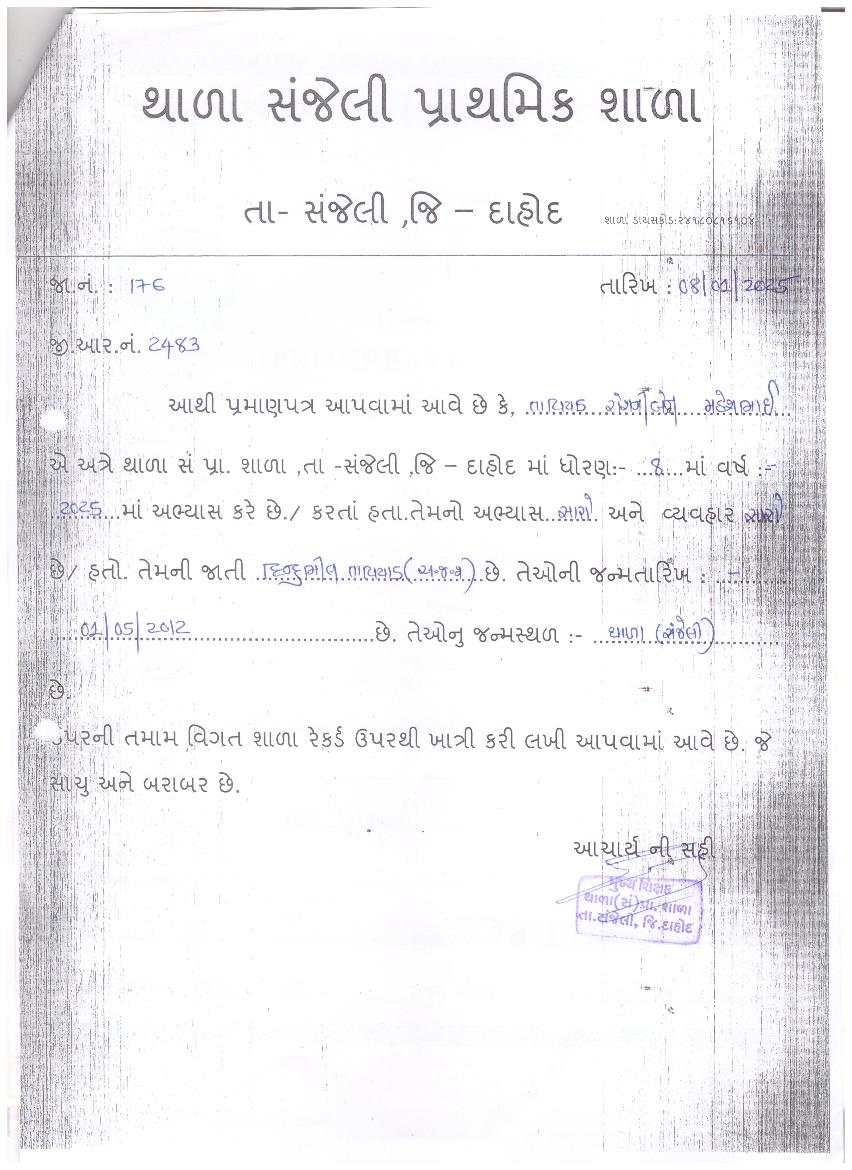 થાળા સંજેલી પ્રાથમિક શાળા
તા- સંજેલી ,જિ – દાહોદ
શાળા ડાયસકોડ:૨૪૧૮૦૮૧૬૧૦૪
જા.નં. : 176 તારિખ : 08/01/2025
જી.આર.નં. 2483
આથી પ્રમાણપત્ર આપવામાં આવે છે કે, તાવિયાડ મહેશભાઈ
એ અત્રે થાળા સં પ્રા. શાળા ,તા -સંજેલી ,જિ – દાહોદ માં ધોરણ:- ...8...માં વર્ષ :-
2025...માં અભ્યાસ કરે છે./ કરતાં હતા.તેમનો અભ્યાસ..સારો. અને વ્યવહાર સારો
છે/ હતો. તેમની જાતી હિન્દુ ભીલ તાવિયાડ (અ.જ.જ)..છે. તેઓની જન્મતારિખ : -
01/05/2012 છે. તેઓનુ જન્મસ્થળ :- થાળા (સંજેલી)
છે.
ઉપરની તમામ વિગત શાળા રેકર્ડ ઉપરથી ખાત્રી કરી લખી આપવામાં આવે છે. જે
સાચુ અને બરાબર છે.
આચાર્ય ની સહી
મુખ્ય શિક્ષક
થાળા(સં)પ્રા. શાળા
તા.સંજેલી, જિ.દાહોદ